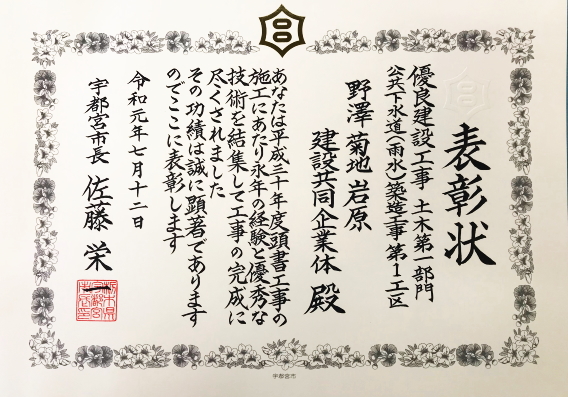 表彰状
優良建設工事 土木第一部門
公共下水道(雨水)築造工事第1工区
野澤 菊地 岩原
建設共同企業体 殿
あなたは平成三十年度頭書工事の
施工にあたり永年の経験と優秀な
技術を結集して工事の完成に
尽くされました
その功績は誠に顕著であります
のでここに表彰します
令和元年七月十二日
宇都宮市長 佐藤栄一
宇都宮市